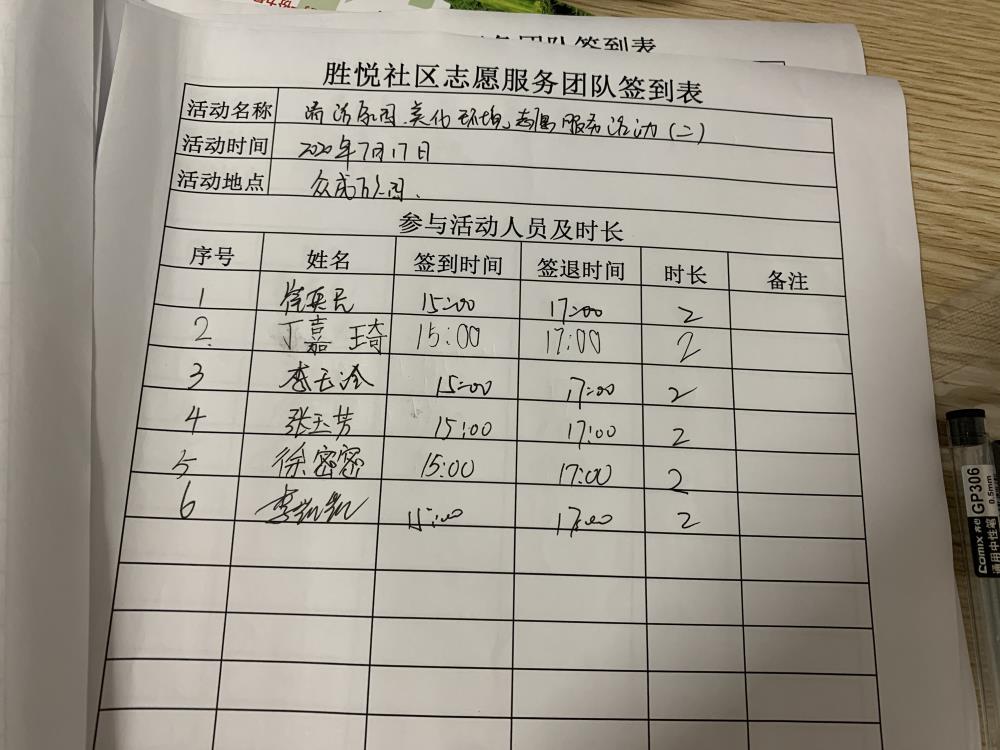 务团队签到表
胜悦社区志愿服务团队签到表
活动名称 清洁家园、美化环境,志愿服务活动(二)
活动时间 2020年7月17日
活动地点 众成公园、
参与活动人员及时长
序号 姓名 签到时间 签退时间 时长 备注
1 15:00 17:00 2
2. 丁嘉琦 15:00 17:00 2
3 李玉 15:00 17:00 2
4 张玉芳 15:00 17:00 2
5 徐密密 15:00 17:00 2
6 李凯凯 15:00 17:00 2
Comix 齐心 GP306 0.5mm
通用中性笔